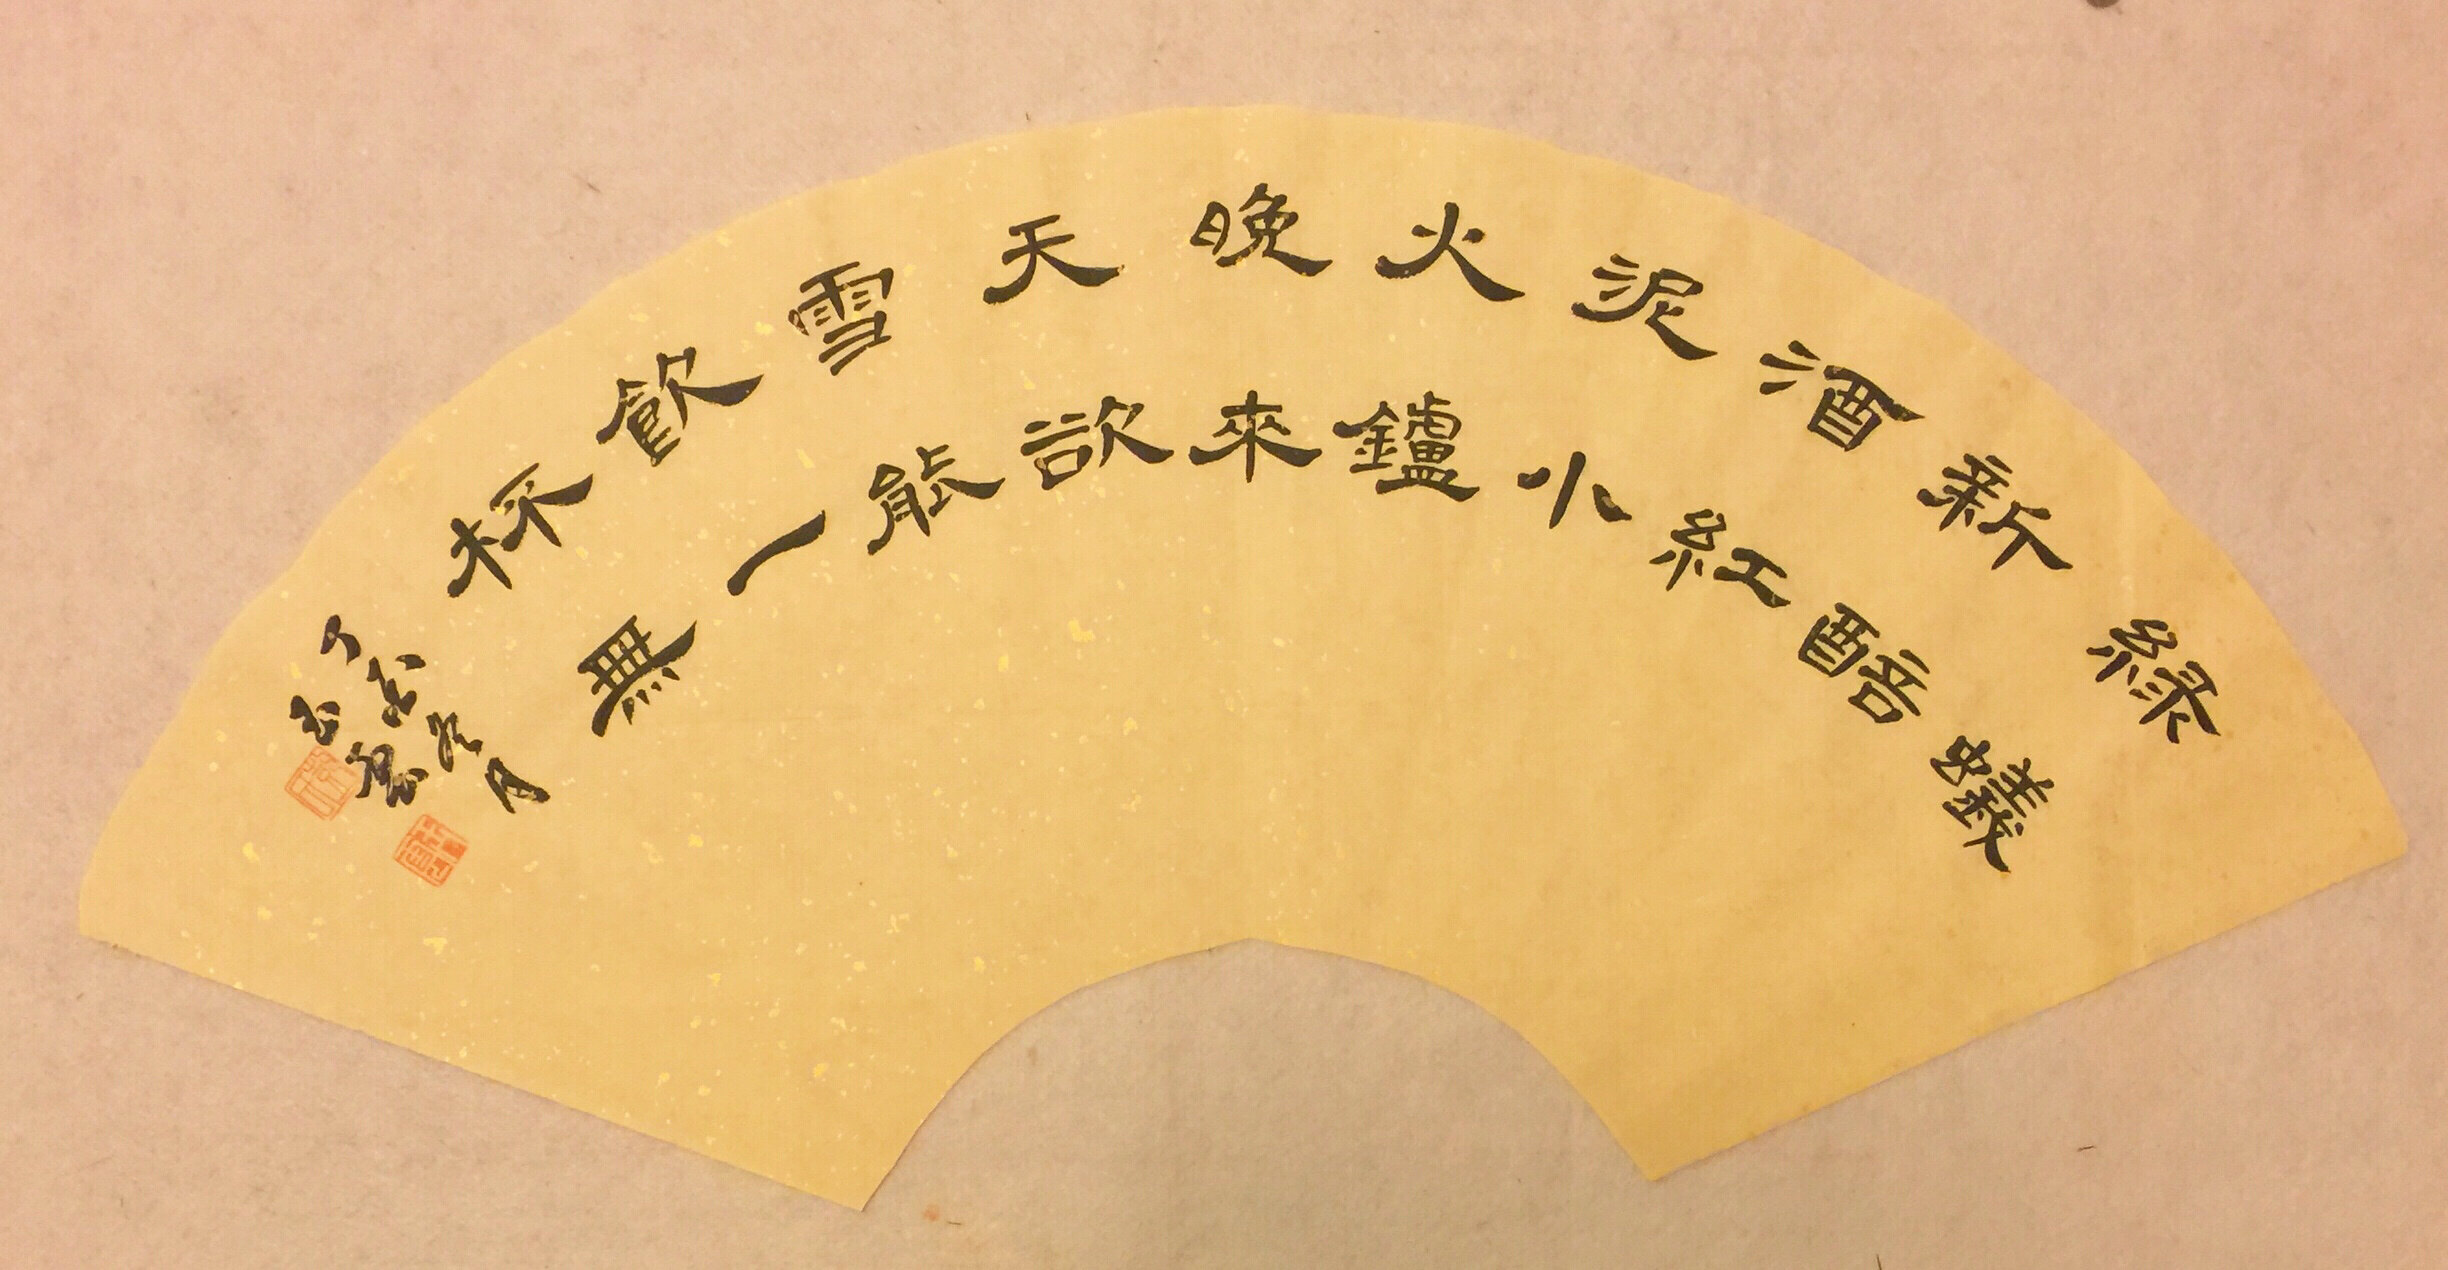 緑蟻
新醅
酒紅
泥小
火鑪
晚來
天欲
雪能
飲一
杯無
丁酉冬月